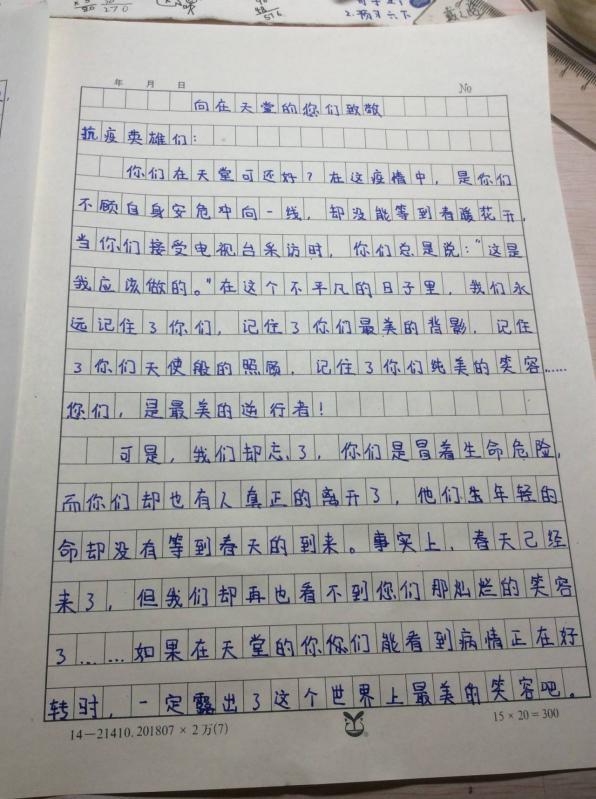 年 月 日 No
向在天堂的你们致敬
抗疫英雄们：
你们在天堂可还好？在这疫情中，是你们
不顾自身安危冲向一线，却没能等到春暖花开，
当你们接受电视台采访时，你们总是说：“这是
我应该做的。”在这个不平凡的日子里，我们永
远记住了你们，记住了你们最美的背影，记住
了你们天使般的照顾，记住了你们纯美的笑容……
你们，是最美的逆行者！
可是，我们却忘了，你们是冒着生命危险，
而你们却也有人真正的离开了，他们生年轻的
命却没有等到春天的到来。事实上，春天已经
来了，但我们却再也看不到你们那灿烂的笑容
了……如果在天堂的你你们能看到病情正在好
转时，一定露出了这个世界上最美的笑容吧。
14—21410.201807×2万(7) 15×20=300